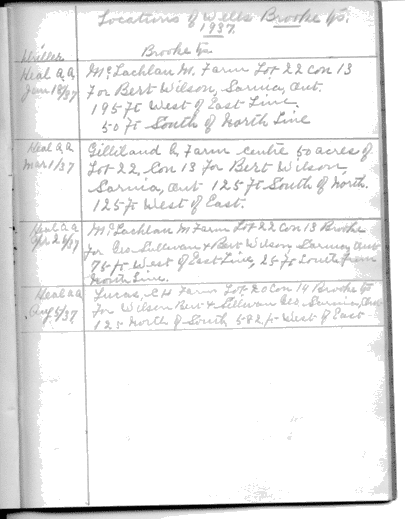 Locations of Wells Brooke Tp.
1937.
Driller Brooke Tp
Heal A.A. McLachlan M. Farm Lot 22 Con 13
Jan 18/37 For Bert Wilson, Sarnia, Ont.
195 ft West of East Line.
50 ft South of North Line
Heal A.A. Gilliland A. Farm centre 50 acres of
Mar 1/37 Lot 22, Con 13 For Bert Wilson,
Sarnia, Ont 125 ft South of North.
125 ft West of East.
Heal A.A. McLachlan M Farm Lot 22 Con 13 Brooke
Apr 26/37 for Geo Sullivan & Bert Wilson Sarnia Ont
75 ft West of East Line, 25 ft South from
North Line.
Heal A.A. Lucas, C H Farm Lot 20 Con 14 Brooke Tp
Aug 5/37 For Wilson Bert & Sullivan Geo Sarnia, Ont
125 North of South 582 ft West of East